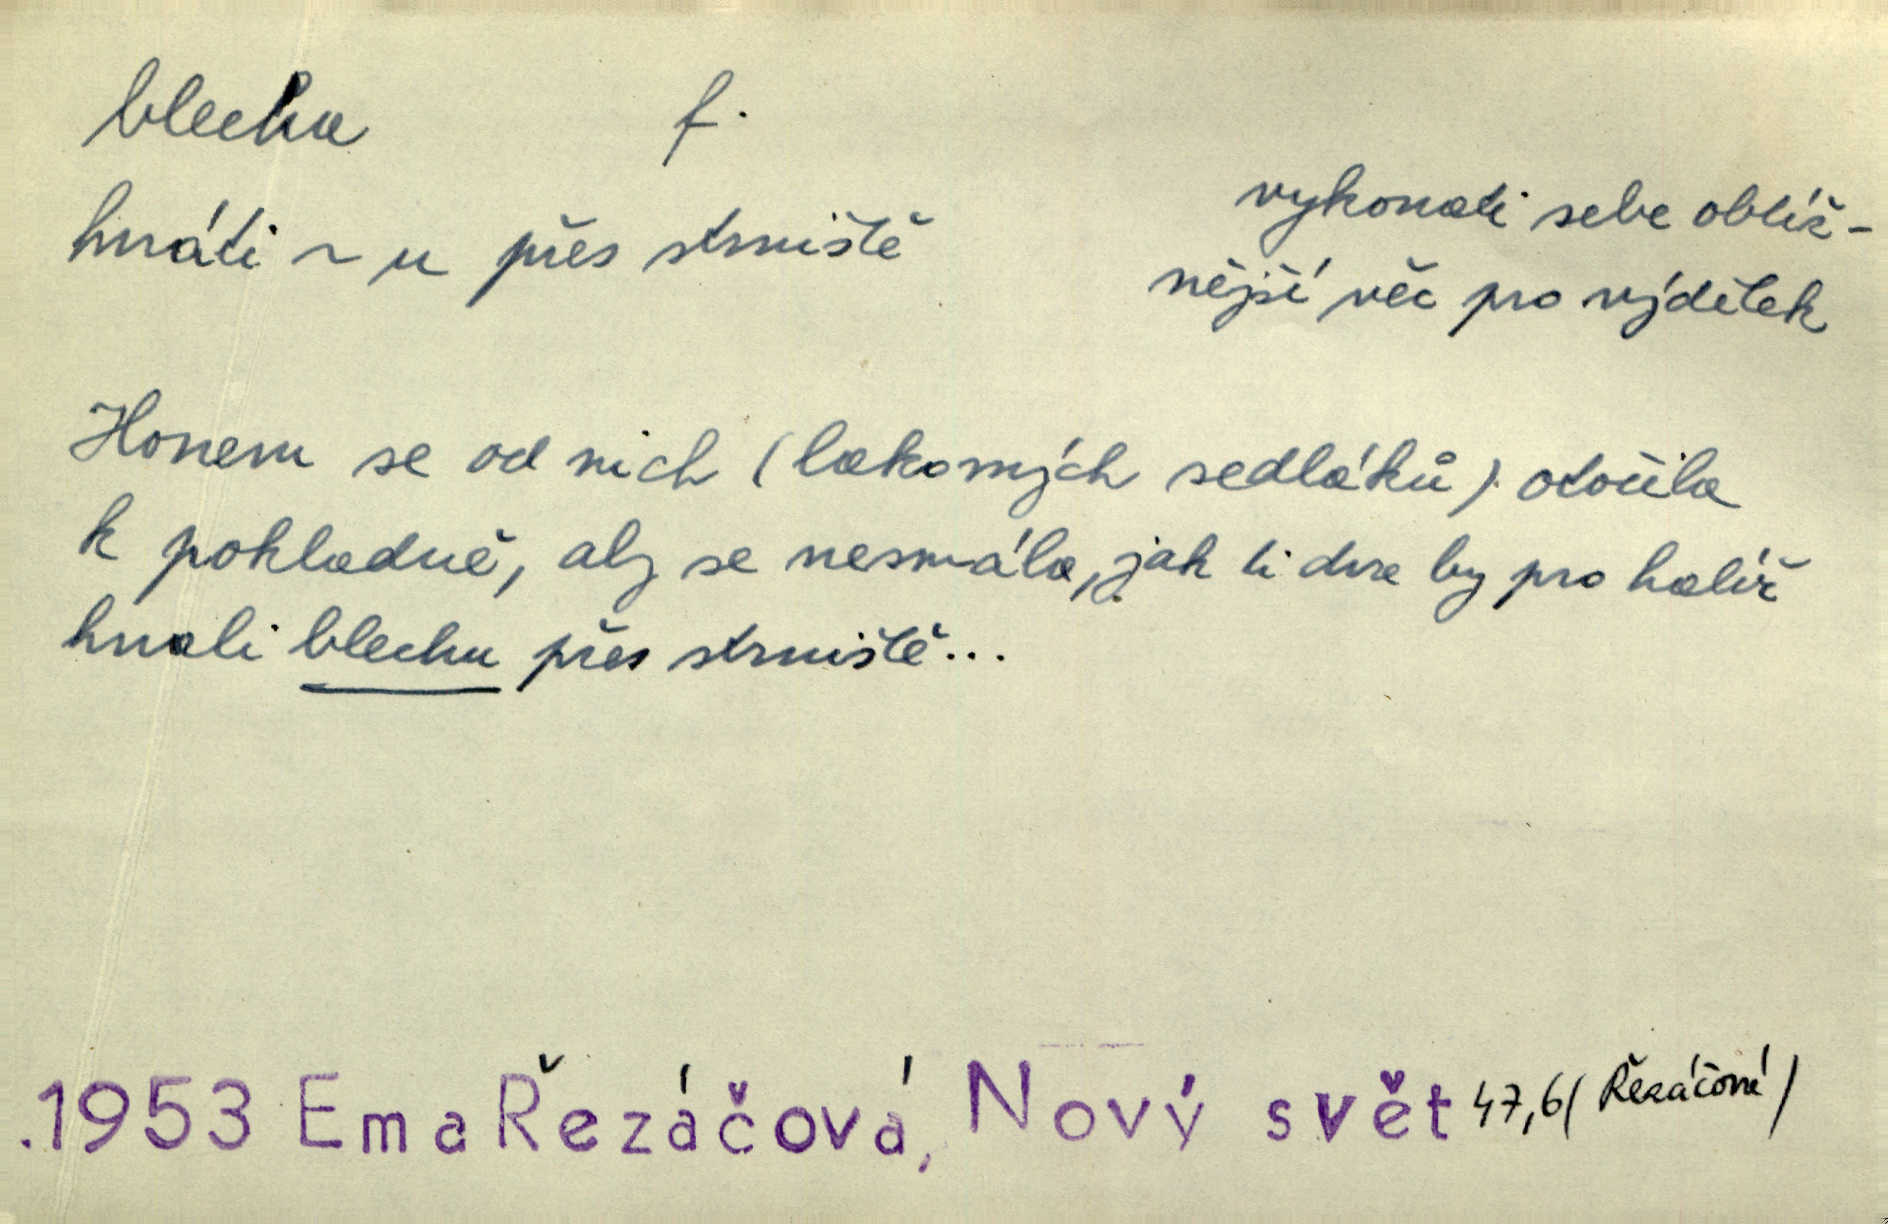 blecha f.
hnáti ~ u přes strniště
vykonati sebe obtíž-
nější věc pro výdělek
Honem se od nich (lakomých sedláků) otočila
k pokladně, aby se nesmála, jak ti dva by pro halíř
hnali blechu přes strniště...
.1953 Ema Řezáčová, Nový svět 47,6 (Řezáčová)